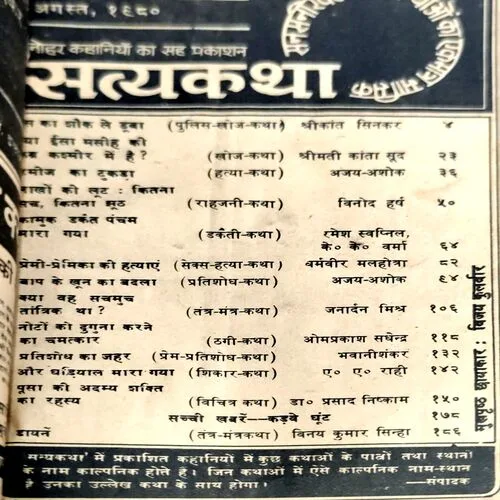 अगस्त, १९८०
नोहर कहानियाँ का सह प्रकाशन
सत्यकथा
का एकमात्र मासिक
स का शौक ले डूबा (पुलिस-खोज-कथा) श्रीकांत सिनकर ४
या ईसा मसीह की
ब्र कश्मीर में है ? (खोज-कथा) श्रीमती कांता सूद २३
मीज का टुकड़ा (हत्या-कथा) अजय-अशोक ३६
लाखों की लूट : कितना
सच, कितना झूठ (राहजनी-कथा) विनोद हर्ष ५०
कामुक डकैत पंचम
मारा गया (डकैती-कथा) रमेश स्वप्निल,
के० के० वर्मा ६४
प्रेमी-प्रेमिका की हत्याएं (सेक्स-हत्या-कथा) धर्मवीर मलहोत्रा ८२
बाप के खून का बदला (प्रतिशोध-कथा) अजय-अशोक ९४
क्या वह सचमुच
तांत्रिक था ? (तंत्र-मंत्र-कथा) जनार्दन मिश्र १०६
नोटों को दुगुना करने
का चमत्कार (ठगी-कथा) ओमप्रकाश सधेन्द्र ११८
प्रतिशोध का जहर (प्रेम-प्रतिशोध-कथा) भवानीशंकर १३२
और घड़ियाल मारा गया (शिकार-कथा) ए० ए० राही १४२
पूसा की अदम्य शक्ति
का रहस्य (विचित्र कथा) डा० प्रसाद निष्काम १५०
सच्ची खबरें—कड़वे घूंट १७८
डायनें (तंत्र-मंत्रकथा) विनय कुमार सिन्हा १८६
मुखपृष्ठ छायाकार : विजय कुलवीर
'सत्यकथा' में प्रकाशित कहानियों में कुछ कथाओं के पात्रों तथा स्थानों
के नाम काल्पनिक होते हैं । जिन कथाओं में ऐसे काल्पनिक नाम-स्थान
हैं उनका उल्लेख कथा के साथ होगा । —संपादक